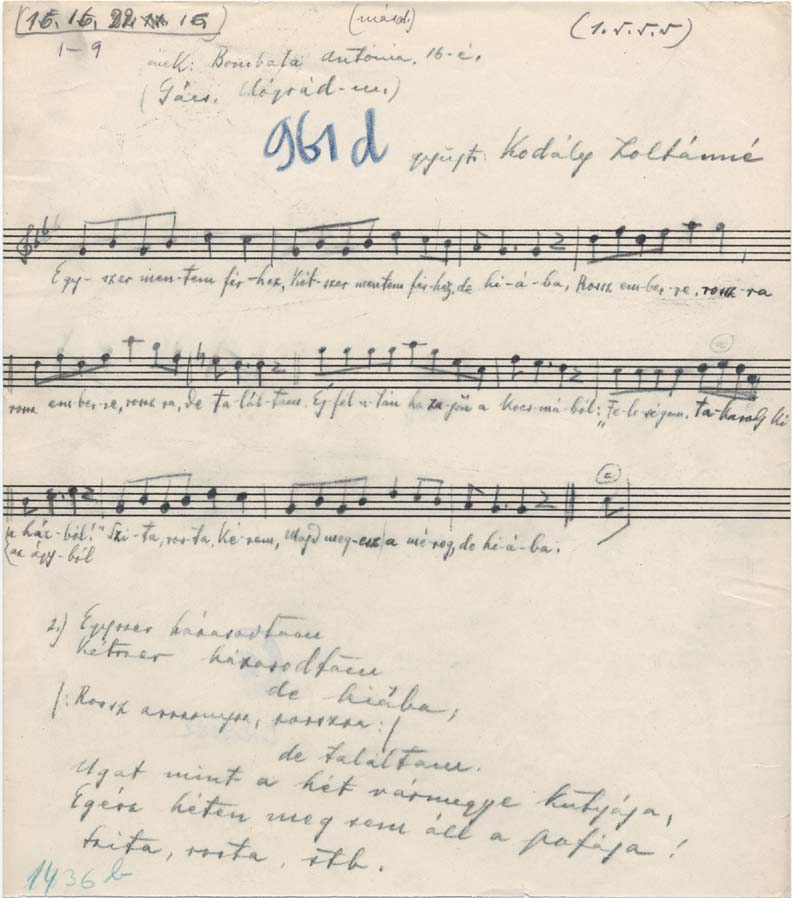 (16, 16, 22 16) (másol.) (1.5.5.5)
1–9
ének: Bombala Antónia, 16 é.
(Gács, Nógrád-m.)
961 d gyűjt. Kodály Zoltánné
Egy-szer men-tem fér-hez, Két-szer mentem fér-hez, de hi-á-ba, Rossz em-ber-re, rossz-ra
rossz em-ber-re, rossz-ra, de ta-lál-tam. Éj-fél u-tán ha-za-jön a kocs-má-ból: „Fe-le-ségem, ta-karodj ki
a ház-ból!" Szi-ta, ros-ta, Ké-rem, Majd meg-esz a mé-reg, de hi-á-ba.
(az ágy-ból
2.) Egyszer házasodtam
Kétszer házasodtam
de hiába,
/: Rossz asszonyra, rosszra :/
de találtam.
Ugat mint a hét vármegye kutyája,
Egész héten meg sem áll a pofája!
Szita, rosta, stb.
1436 b